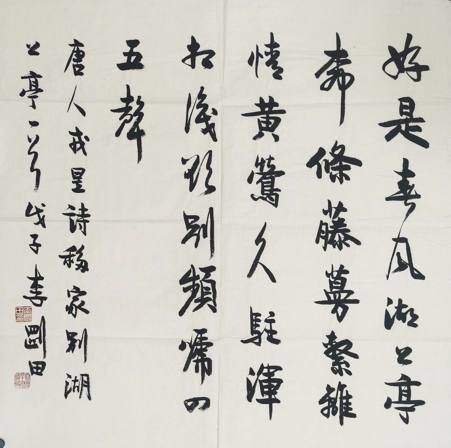 好是春风湖上亭
柳條藤蔓繫離
情黄鶯久駐渾
相識欲别頻啼四
五聲
唐人戎昱詩移家别湖
上亭一首戊子李剛田